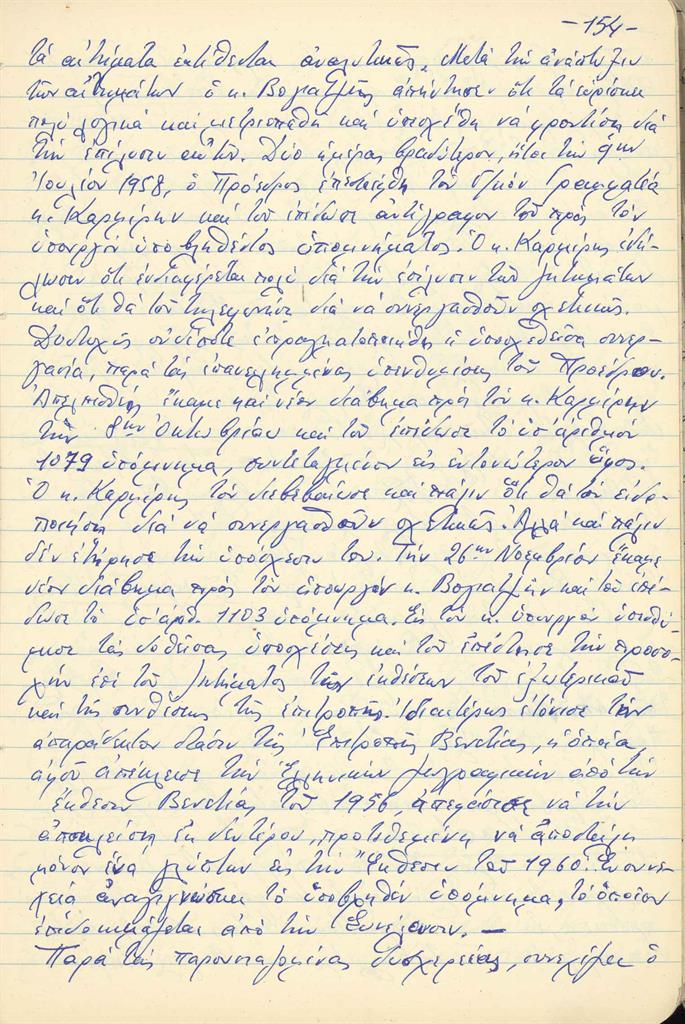 -154-
τά αἰτήματα ἐκτίθενται ἀναλυτικῶς. Μετά τήν ἀνάπτυξιν
τῶν αἰτημάτων ὁ κ. Βογιατζῆς ἀπήντησεν ὅτι τά εὑρίσκει
πολύ λογικά καί μετριοπαθῆ καί ὑπεσχέθη νά φροντίσῃ διά
τήν ἐπίλυσιν αὐτῶν. Δύο ἡμέρας βραδύτερον, ἤτοι τήν
Ἰουλίου 1958, ὁ Πρόεδρος ἐπεσκέφθη τόν Γραμματέα
κ. Καρμίρην καί τοῦ ἐπέδωσε ἀντίγραφον τοῦ πρός τόν
ὑπουργόν ὑποβληθέντος ὑπομνήματος. Ὁ κ. Καρμίρης ἐδή-
λωσεν ὅτι ἐνδιαφέρεται πολύ διά τήν ἐπίλυσιν τῶν ζητημάτων
καί ὅτι θά τοῦ τηλεφωνήσῃ διά νά συνεργασθοῦν σχετικῶς.
Δυστυχῶς οὐδέποτε ἐπραγματοποιήθη ἡ ὑποσχεθεῖσα συνερ-
γασία, παρά τάς ἐπανειλημμένας ὑπενθυμίσεις τοῦ Προέδρου.
Ἀπελπισθείς ἔκαμε καί νέον διάβημα πρός τόν κ. Καρμίρην
τήν 8ην Ὀκτωβρίου καί τοῦ ἐπέδωσε τό ὑπ' ἀριθμόν
1079 ὑπόμνημα, συντεταγμένον εἰς ἐντονώτερον ὕφος.
Ὁ κ. Καρμίρης τόν διεβεβαίωσε καί πάλιν ὅτι θά τόν εἰδο-
ποιήσῃ διά νά συνεργασθοῦν σχετικῶς. Ἀλλά καί πάλιν
δέν ἐτήρησε τήν ὑπόσχεσίν του. Τήν 26ην Νοεμβρίου ἔκαμε
νέον διάβημα πρός τόν ὑπουργόν κ. Βογιατζῆν καί τοῦ ἐπέ-
δωσε τό ὑπ' ἀριθ. 1103 ὑπόμνημα. Εἰς τόν κ. ὑπουργόν ὑπενθύ-
μισε τάς δοθείσας ὑποσχέσεις καί τοῦ ἐπέστησε τήν προσο-
χήν ἐπί τοῦ ζητήματος τῶν ἐκθέσεων τοῦ ἐξωτερικοῦ
καί τῆς συνθέσεως τῆς ἐπιτροπῆς. Ἰδιαιτέρως ἐτόνισε τήν
ἀπαράδεκτον στάσιν τῆς Ἐπιτροπῆς Βενετίας, ἡ ὁποία,
ἀφοῦ ἀπέκλεισε τήν ἑλληνικήν ζωγραφικήν ἀπό τήν
Ἔκθεσιν Βενετίας τοῦ 1956, ἀπεφάσισε νά τήν
ἀποκλείσῃ ἐκ δευτέρου, προτιθεμένη νά ἀποστείλῃ
μόνον ἕνα γλύπτην εἰς τήν Ἔκθεσιν τοῦ 1960. Ἐν συνε-
χείᾳ ἀναγιγνώσκει τό ὑποβληθέν ὑπόμνημα, τό ὁποῖον
ἐπιδοκιμάζεται ἀπό τήν Συνέλευσιν. —
Παρά τάς παρουσιαζομένας δυσχερείας, συνεχίζει ὁ